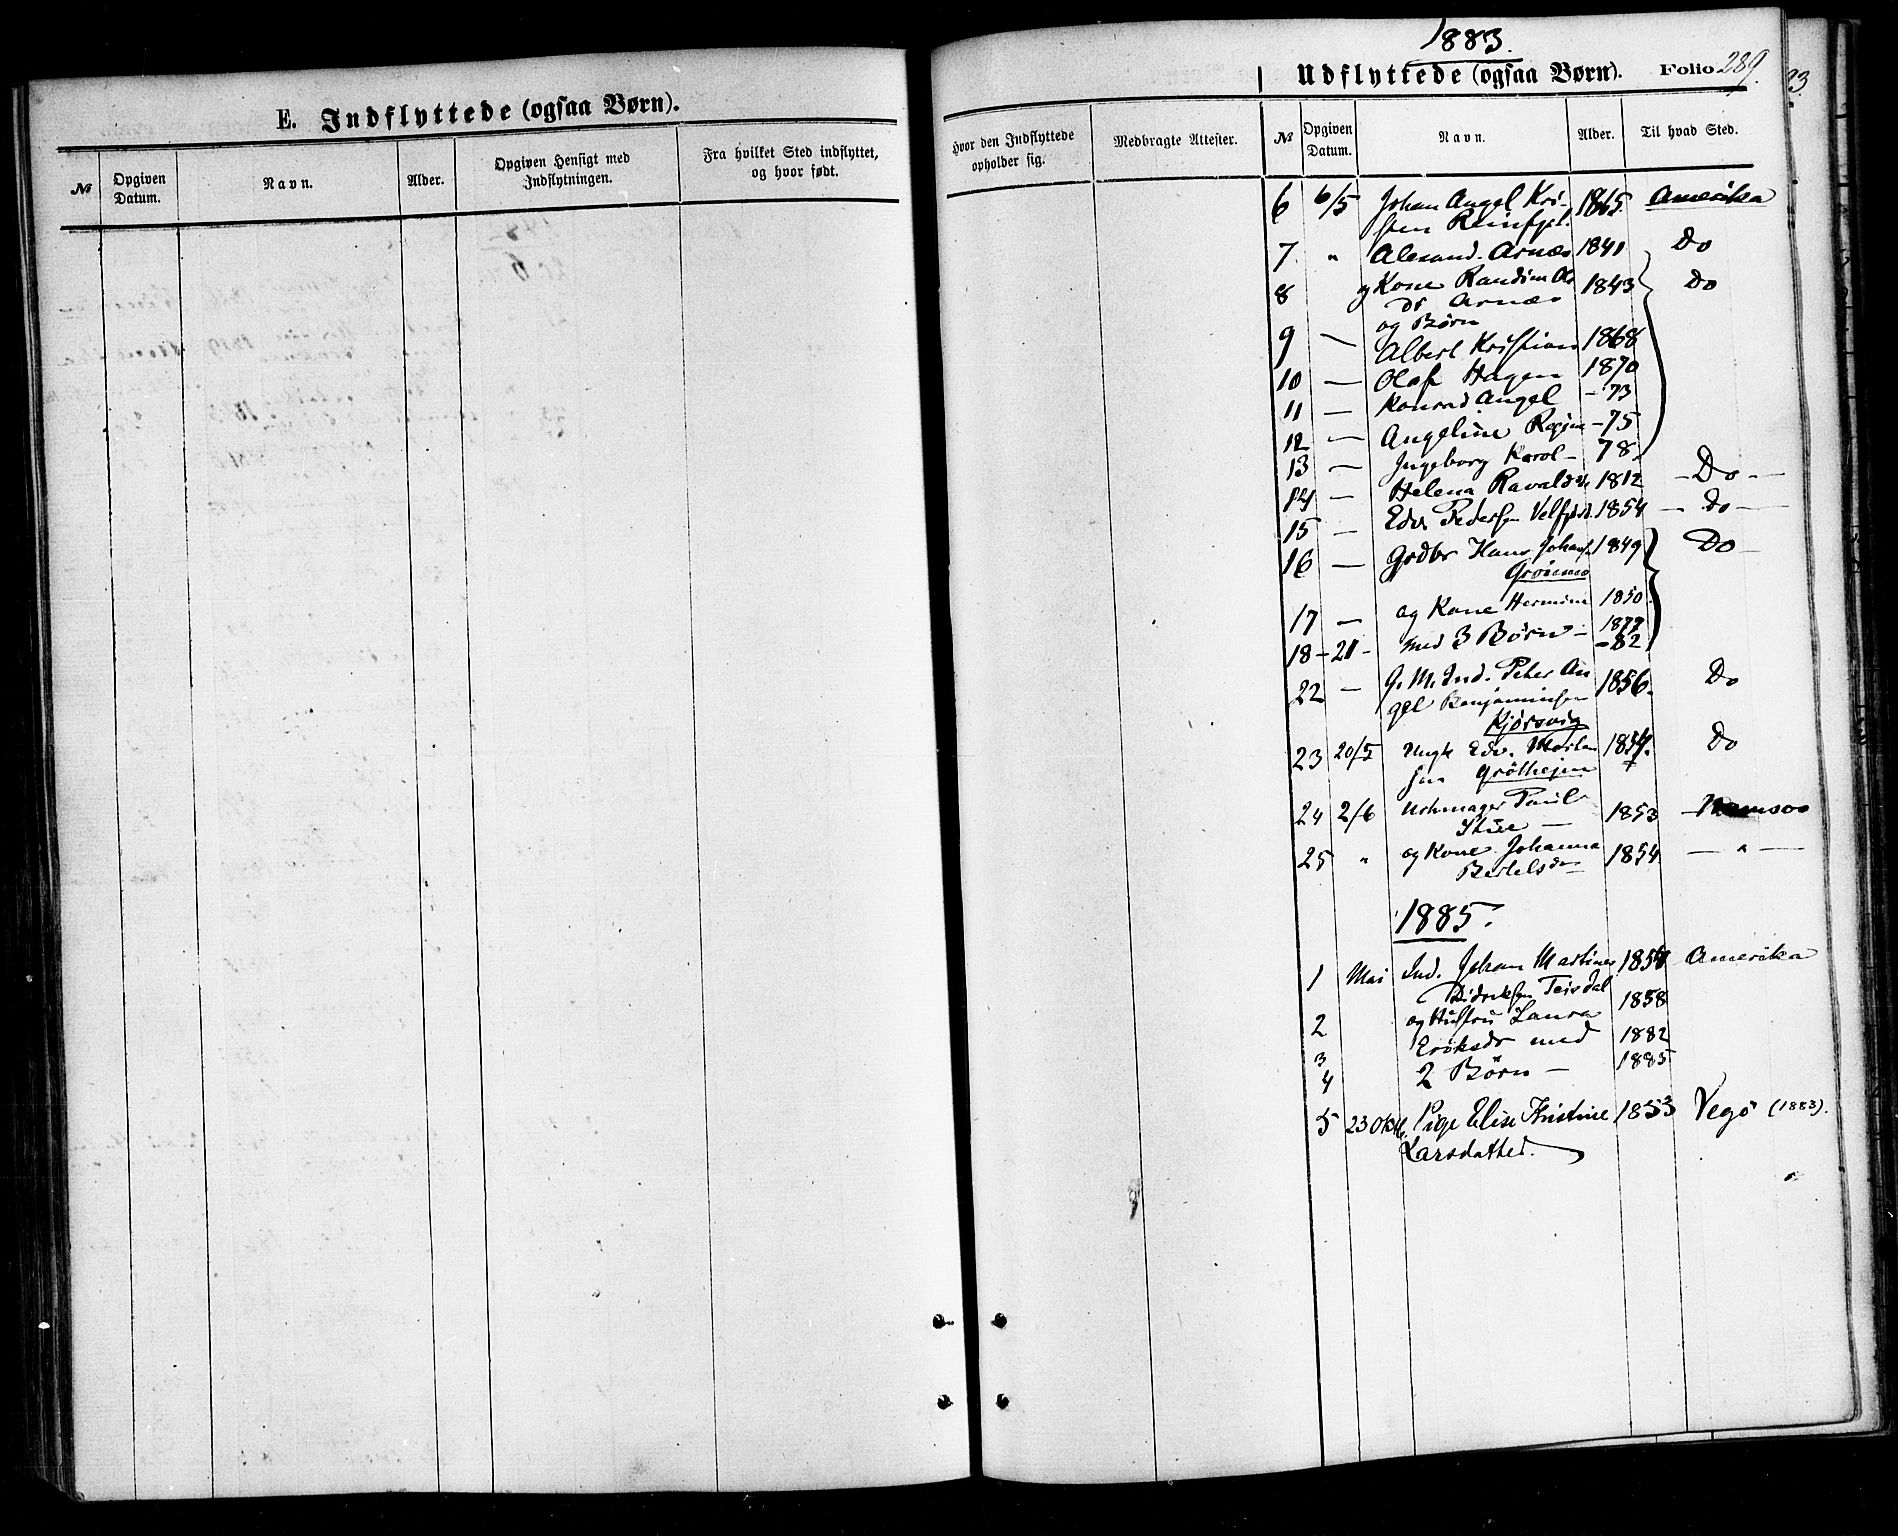 E. Indflyttede (ogsaa Børn).
№ Opgiven Datum. Navn. Alder. Opgiven Hensigt med Indflytningen. Fra hvilket Sted indflyttet, og hvor født.
1883.
Udflyttede (ogsaa Børn). Folio 289.
Hvor den Indflyttede opholder sig. Medbragte Attester. № Opgiven Datum. Navn. Alder. Til hvad Sted.
6 6/5 Johan Angel Kri- 1865. Amerika
sten Reinfjel.
7. " Alexand. Arnæs 1841 Do
8 og Kone Randine Ols 1843 Do
dr Arnæs
og Børn
9 — Albert Kristian 1868
10 — Olaf Hagen 1870
11 — Konrad Angel - 73
12 — Angeline Regine - 75
13 — Ingeborg Karol - 78.
14 — Helena Ravaldsdr 1812 - Do -
15 — Edv. Pedersen Velfjord. 1854 - Do -
16 — Grdbr Hans Johans. 1849 Do -
Grönmo
17 — og Kone Hermine 1850.
18 - 21 - med 3 Børn - 1877
- 82
22 — G. M. Ind. Peter An 1856. Do
gel Benjaminsen
Kjørsvig
23 20/5 Ungk. Edv. Morten 1854. Do
sen Grötheim
24 2/6 Urhmager Paul 1853 - Namsos
Stue —
25 " og Kone Johanna 1854 — " —
Bertelsdr
1885.
1 Mai Ind. Johan Martinus 1854 Amerika
Didriksen Teisdal
2 og Hustru Laura 1858
Eriksdr med 1882
3 2 Børn — 1885
4
5 23 Okt. Pige Elise Kristine 1853 Vegö (1883).
Larsdatter.